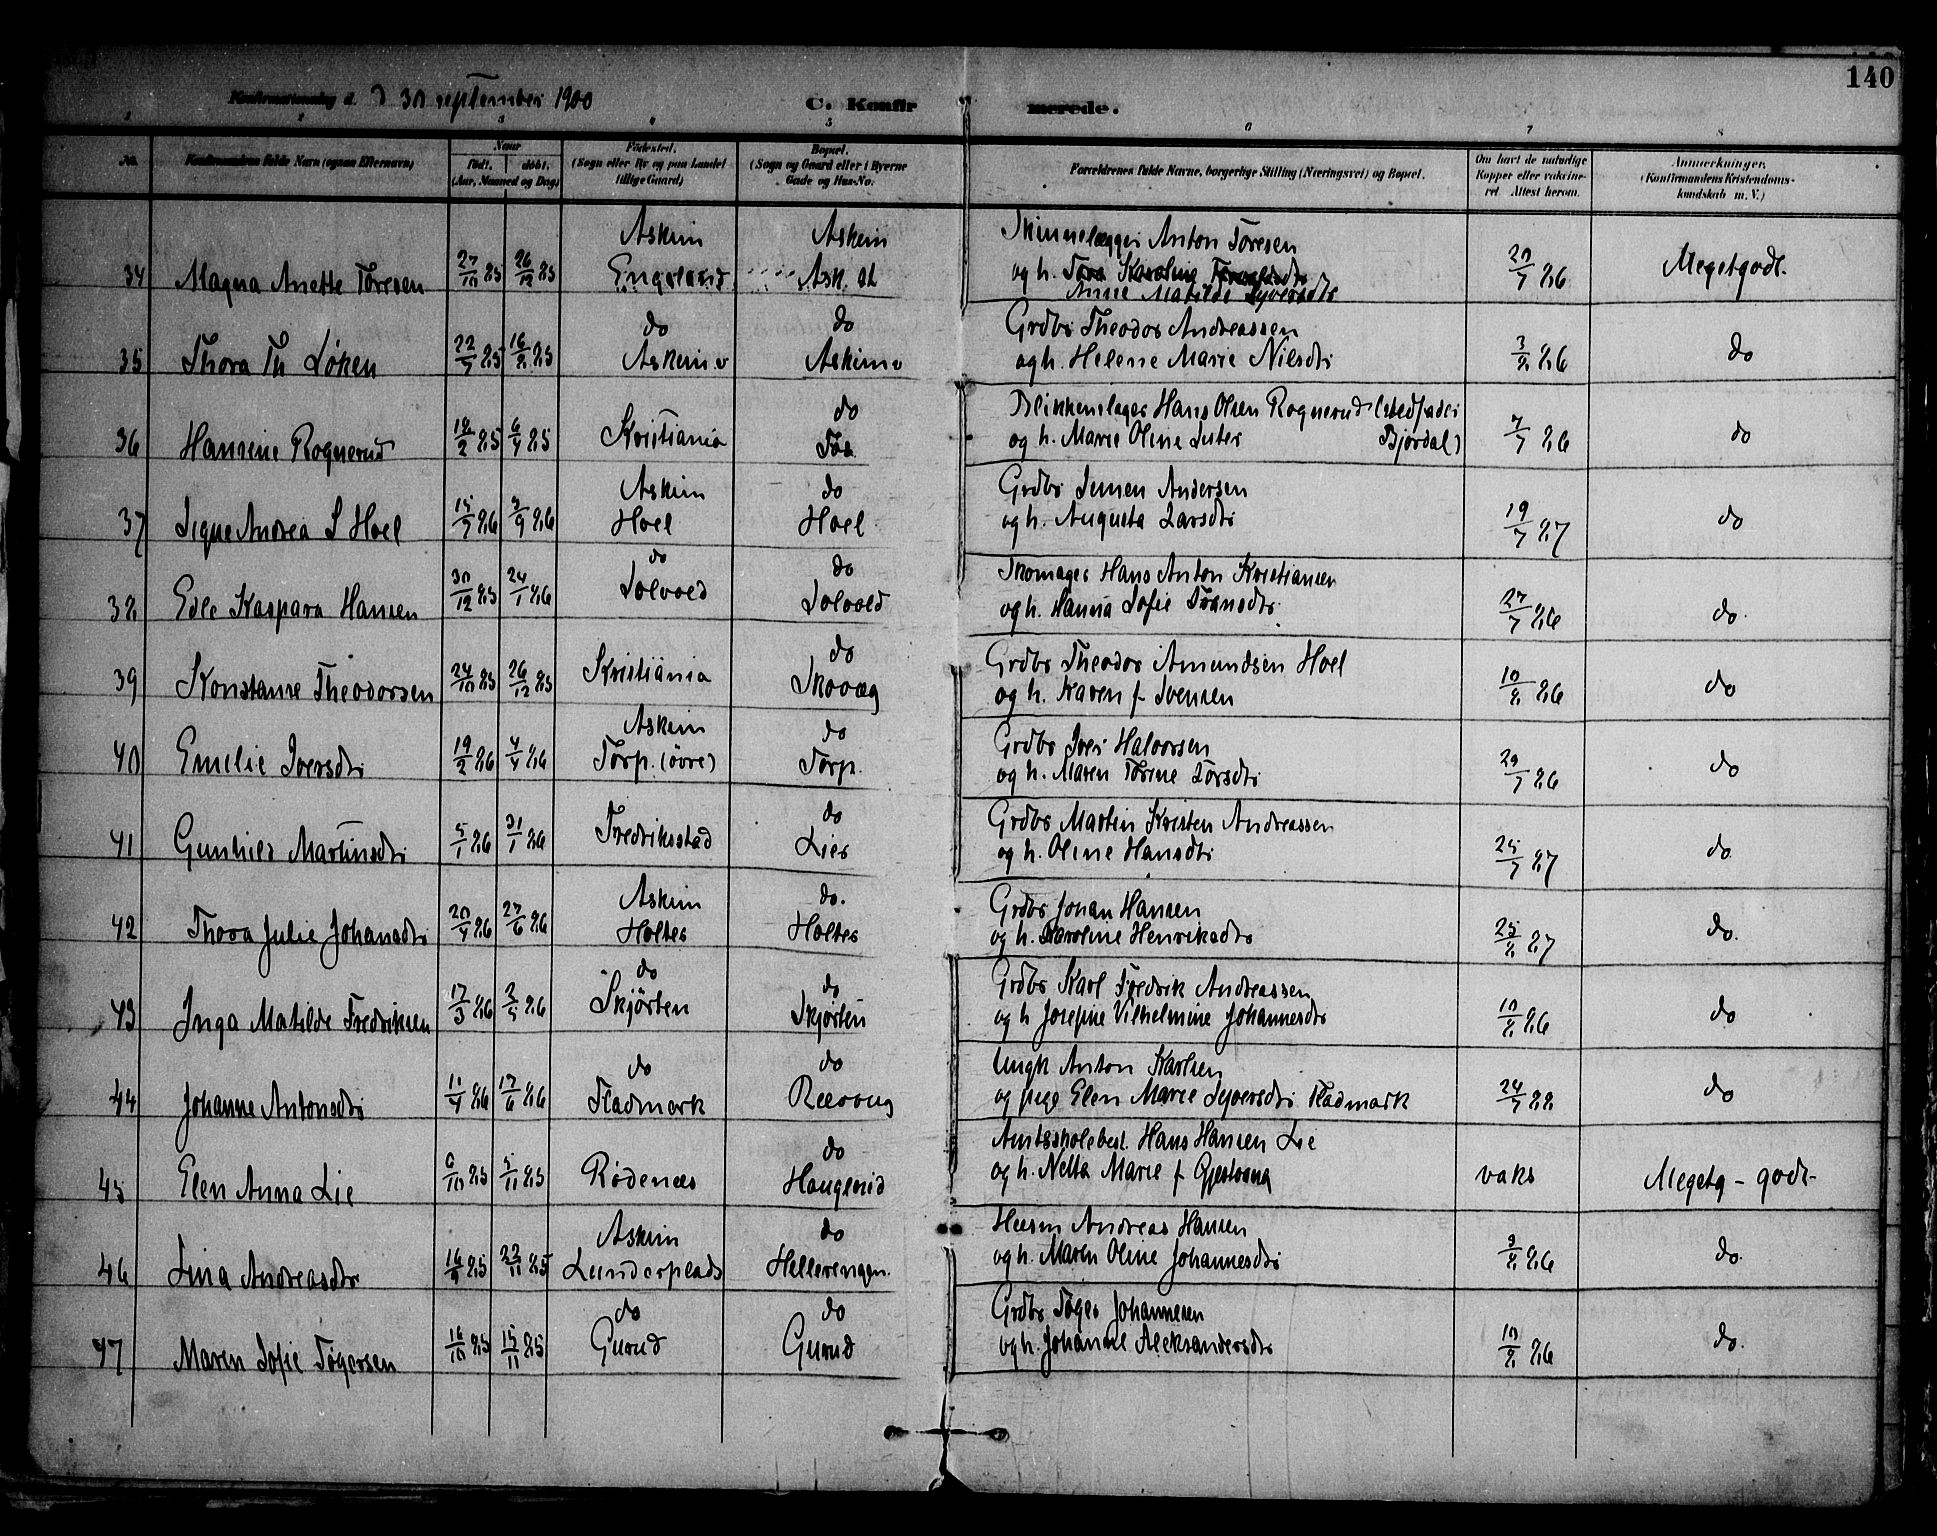 140
Konfirmationsdag d. 30 september 1900 C. Konfirmerede.
1 2 3 4 5 6 7 8
No. Konfirmandens fulde Navn (ogsaa Efternavn) Naar født, døbt, (Aar, Maaned og Dag) Fødested. (Sogn eller By og paa Landet tillige Gaard) Bopæl. (Sogn og Gaard eller i Byerne Gade og Hus-No. Forældrenes fulde Navne, borgerlige Stilling (Næringsvei) og Bopæl. Om havt de naturlige Kopper eller vaccineret. Attest herom. Anmerkninger. (Konfirmandens Kristendomskundskab m. V.)
Askim Askim Skinnelægger Anton Toresen
34 Magna Anette Toresen 27/10 85 26/12 85 Engeland Ask. st og h. Anne Matilde Syversdtr 20/7 86 Megetgodt.
do do Grdbr Theodor Andreassen
35 Thora Th Løken 22/7 85 16/8 85 Askim v Askim v og h. Helene Marie Nilsdtr 3/8 86 do
do Blikkenslager Hans Olsen Rognerud (stedfader
36 Hansine Rognerud 18/2 85 6/4 85 Kristiania og h. Marie Oline Bjørdal) 7/7 86 do
Askim do Grdbr Simen Andersen
37 Signe Andrea S Hoel 15/7 86 5/9 86 Hoel Hoel og h. Augusta Larsdtr 19/7 87 do
do do Skomager Hans Anton Kristiansen
38 Edle Kaspara Hansen 30/12 85 24/1 86 Solvold Solvold og h. Hanna Sofie Fransdtr 27/7 86 do.
do Grdbr Theodor Amundsen Hoel
39 Konstanse Theodorsen 24/10 85 26/12 85 Kristiania Skovæg og h. Karen f Svensen 10/8 86 do
Askim do Grdbr Iver Halvorsen
40 Emelie Iversdtr 19/2 86 4/4 86 Torp. (øvre) Torp. og h. Maren Torine Larsdtr 29/7 86 do
do Grdbr Martin Kristen Andreassen
41 Gunhild Martinsdtr 5/1 86 31/1 86 Fredriksstad Lier og h. Oline Hansdtr 25/7 87 do
Askim do. Grdbr Johan Hansen
42 Thora Julie Johansdtr 20/4 86 27/6 86 Holter Holter og h. Karoline Henriksdtr 25/8 87 do.
do do Grdbr Karl Fredrik Andreassen
43 Inga Matilde Fredriksen 17/3 86 2/5 86 Skjørten Skjørten og h Josefine Vilhelmine Johannesdtr 10/8 86 do
do do Ungk Anton Karlsen
44 Johanne Antonsdtr 11/4 86 17/6 86 Fladmark Rævoug og pige Elen Marie Syversdtr Fladmark 24/7 88 do
do Amtsskolebest. Hans Hansen Lie
45 Elen Anna Lie 6/10 85 5/11 85 Rødenæs Haugerud og h. Netta Marie f Gjestvang vaks Megetg - godt-
Askim do Husm Andreas Hansen
46 Lina Andreasdtr 16/9 85 22/11 85 Lunderplads Hellerengen. og h. Maren Oline Johannesdtr 9/8 86 do.
do do Grdbr Tøger Johannesen
47 Maren Sofie Tøgersen 16/10 85 15/11 85 Gurud Gurud og h. Johanne Aleksandersdtr 10/8 86 do.